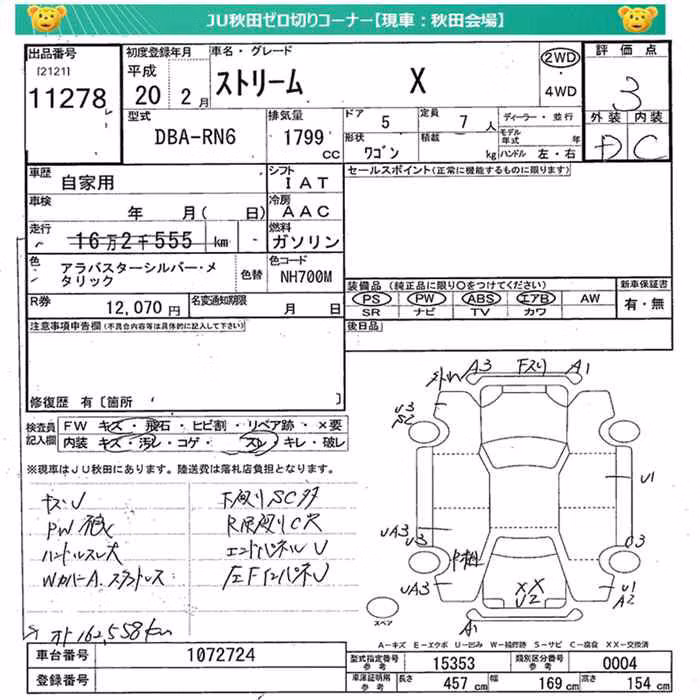 JU秋田ゼロ切りコーナー【現車：秋田会場】
出品番号
[2121]
11278
初度登録年月
平成
20年 2月
車名・グレード
ストリーム X
2WD
4WD
評価点
3
外装 内装
D C
型式
DBA-RN6
排気量
1799
cc
ドア 5
定員 7人
形状 ワゴン
積載 kg
ディーラー・並行
モデル年式 年
ハンドル 左・右
車歴
自家用
シフト
IAT
車検
年 月( 日)
冷房
AAC
走行
16万2千555 km
燃料
ガソリン
色
アラバスターシルバー・メタリック
色替
色コード
NH700M
R券
12,070円
名変通知期限
月 日
セールスポイント(正常に機能するものに限ります)
装備品 (純正品に限り○をつけてください)
PS PW ABS エアB AW
SR ナビ TV カワ
新車保証書
有・無
後日品
注意事項申告欄(不具合内容等は具体的に記入して下さい)
修復歴 有〔箇所 〕
検査員記入欄
FW キズ・飛石・ヒビ割・リペア跡・×要
内装 キズ・汚レ・コゲ・ スレ・キレ・破レ
※現車はJU秋田にあります。陸送費は落札店負担となります。
キズU
PW
ハンドルスレ大
下廻りSC
エンドパネルU
オド162,558km
A3 A1
U3
S2
U1
UA3
U3
U3
UA3
XX
U2
U1
A2
A1
スペア
A－キズ E－エクボ U－凹み W－補修跡 S－サビ C－腐食 XX－交換済
車台番号
1072724
登録番号
型式指定番号 参考
15353
類別区分番号 参考
0004
車庫証明用 参考
長さ 457cm
幅 169cm
高さ 154cm